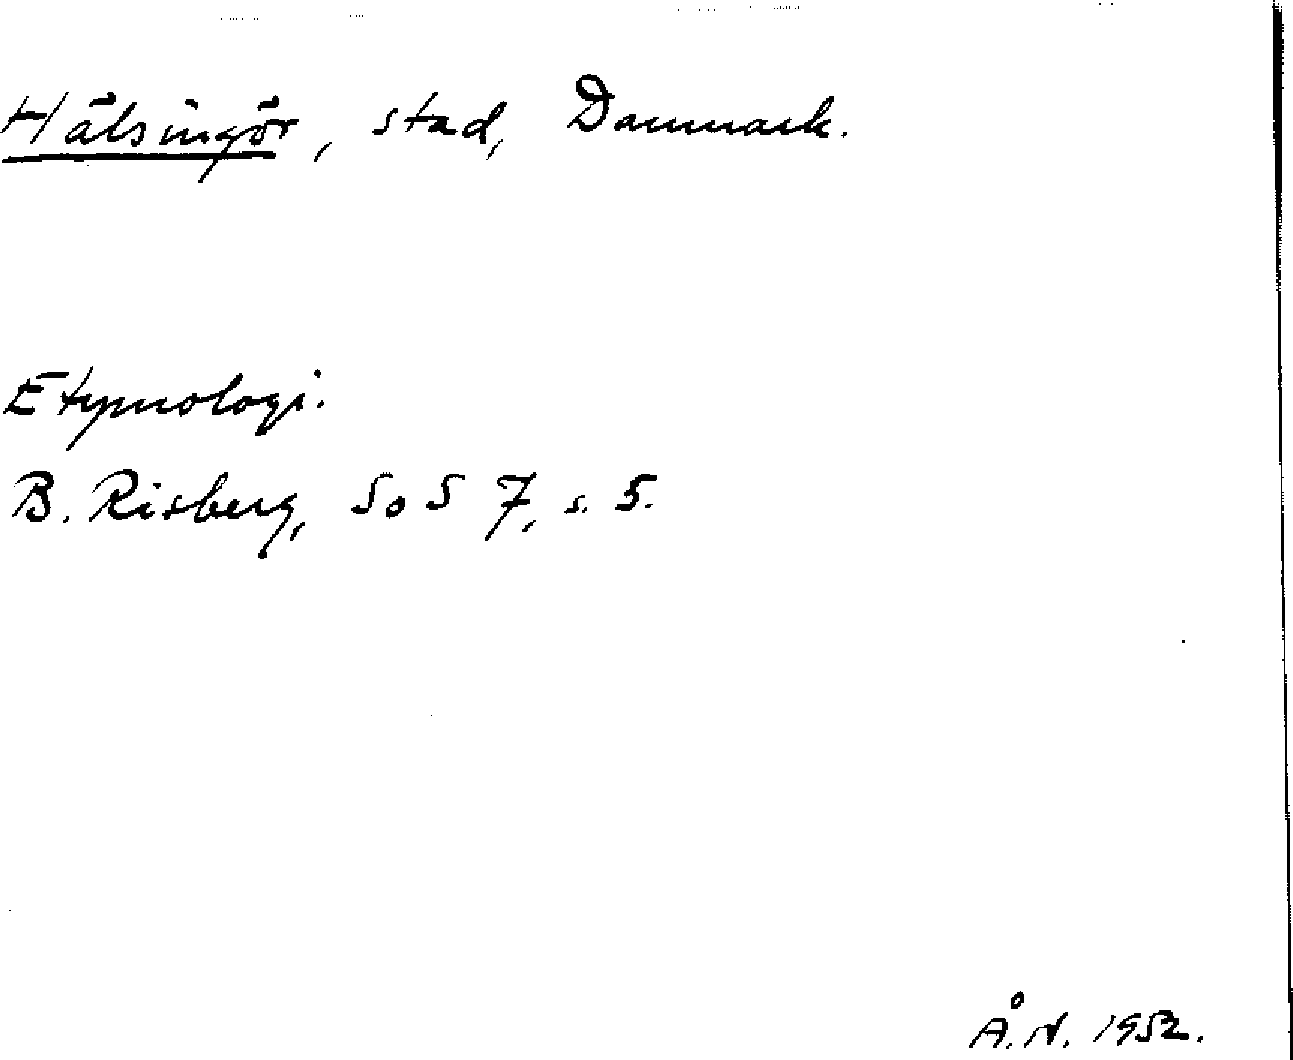 Hälsingör, stad, Danmark.
Etymologi.
B. Risberg, SoS 7, s. 5.
Å. N. 1952.